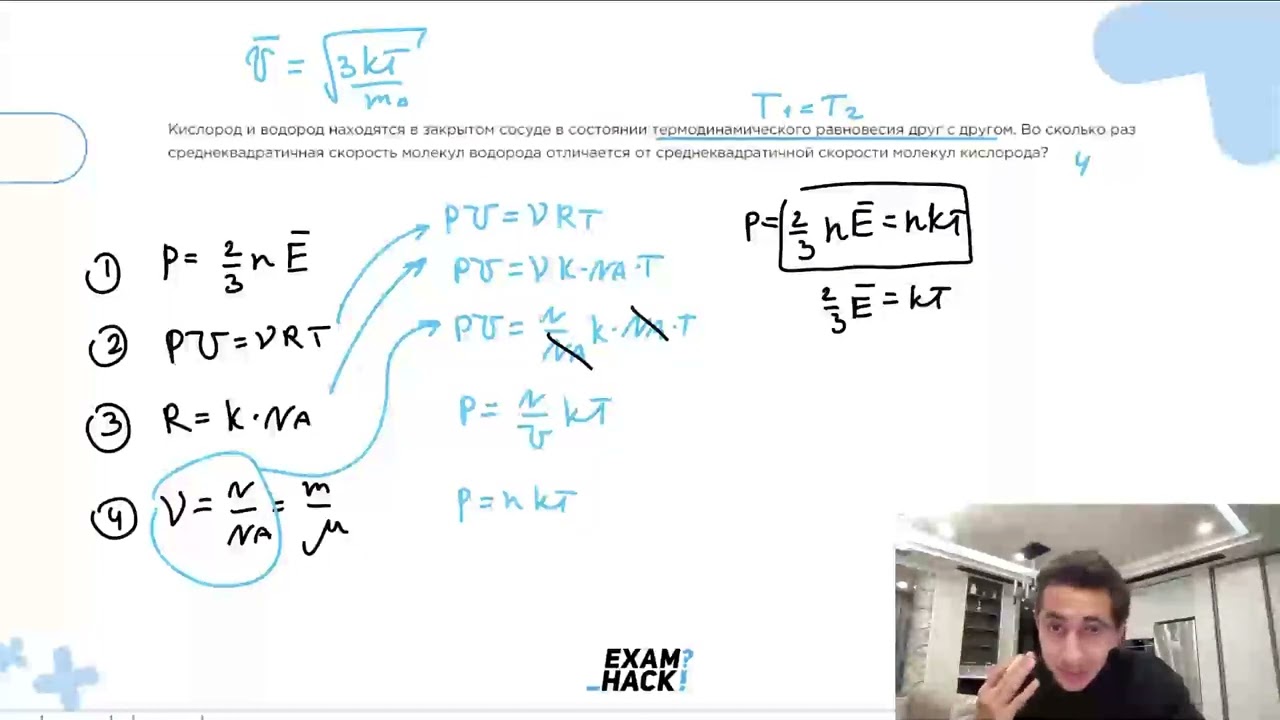 v̄ = √(3kT/m₀)
T₁ = T₂
Кислород и водород находятся в закрытом сосуде в состоянии термодинамического равновесия друг с другом. Во сколько раз
среднеквадратичная скорость молекул водорода отличается от среднеквадратичной скорости молекул кислорода?
4
① P = 2/3 n Ē
② PV = νRT
③ R = k · NA
④ ν = N/NA = m/μ
PV = νRT
PV = νk·NA·T
PV = N/NA k·NA·T
P = N/V kT
P = nkT
P = 2/3 n Ē = nkT
2/3 Ē = kT
EXAM?
_HACK!